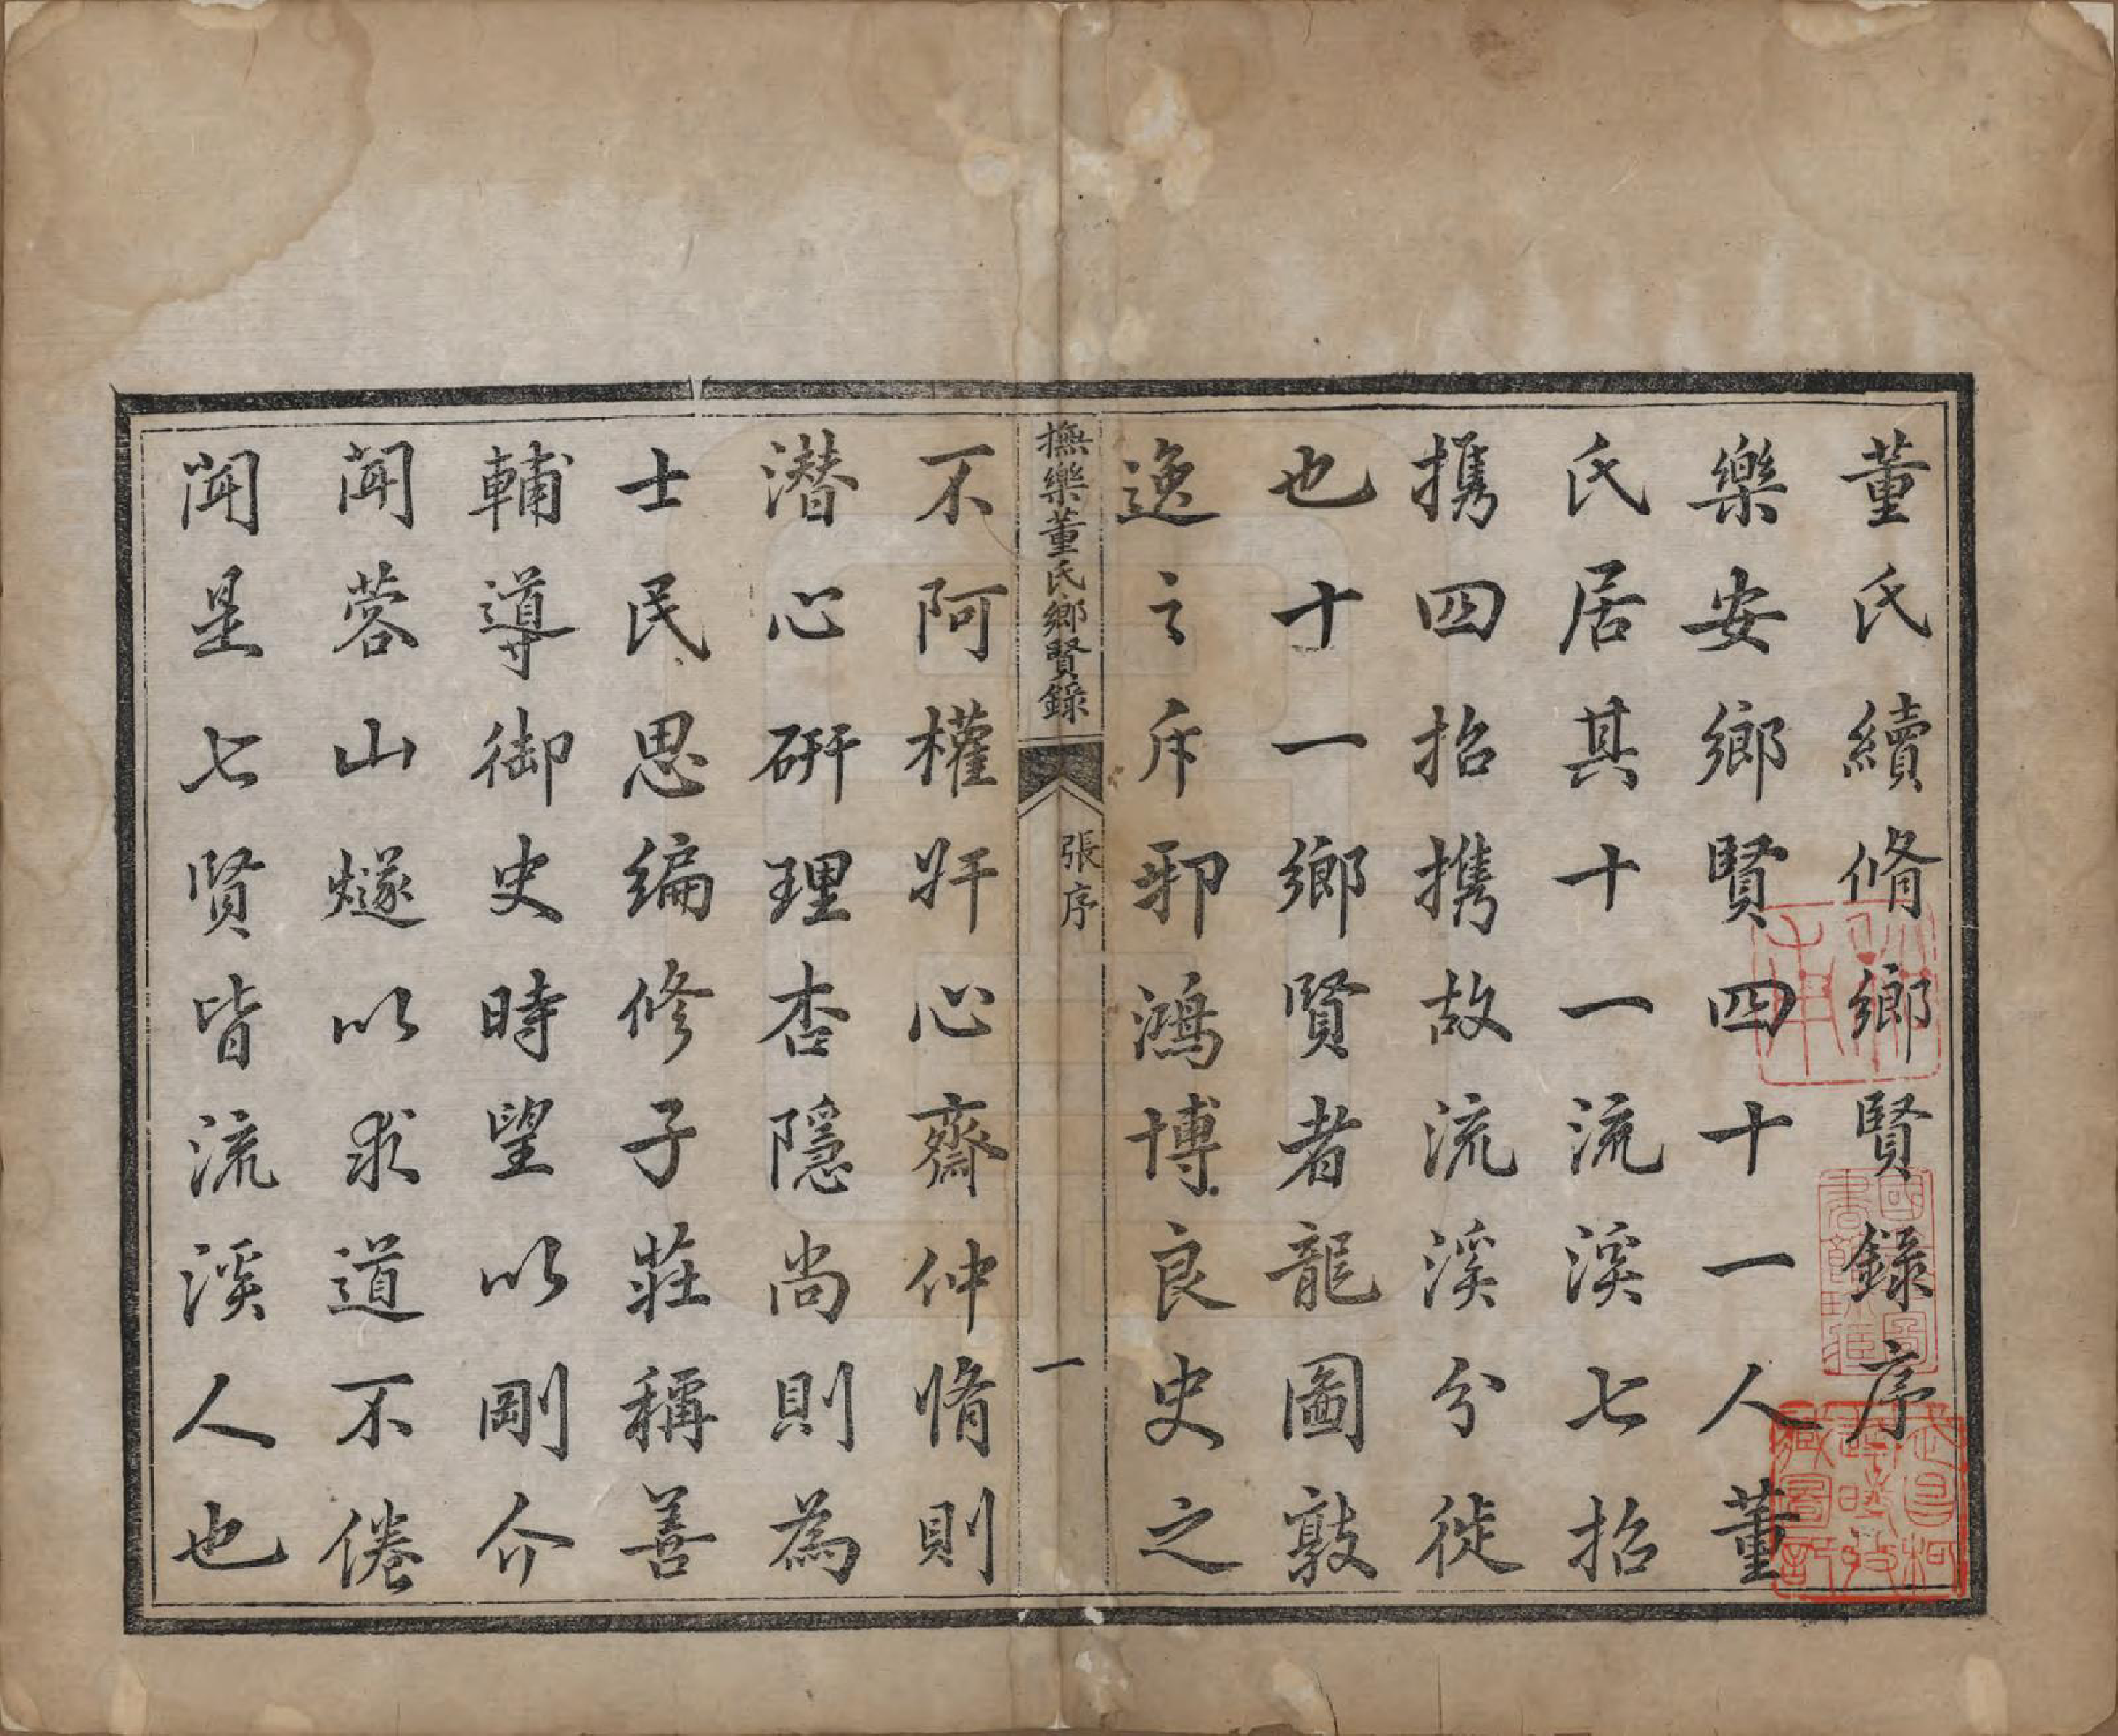 董氏續脩鄉賢錄序
樂安鄉賢四十一人董
氏居其十一流溪七招
攜四招攜故流溪分徙
也十一鄉賢者龍圖敦
逸之斥邪鴻博良史之
撫樂董氏鄉賢錄
張序
一
不阿權奸心齋仲脩則
潛心研理杏隱尚則為
士民思編修子莊稱善
輔導御史時望以剛介
聞蓉山燧以求道不倦
聞是七賢皆流溪人也